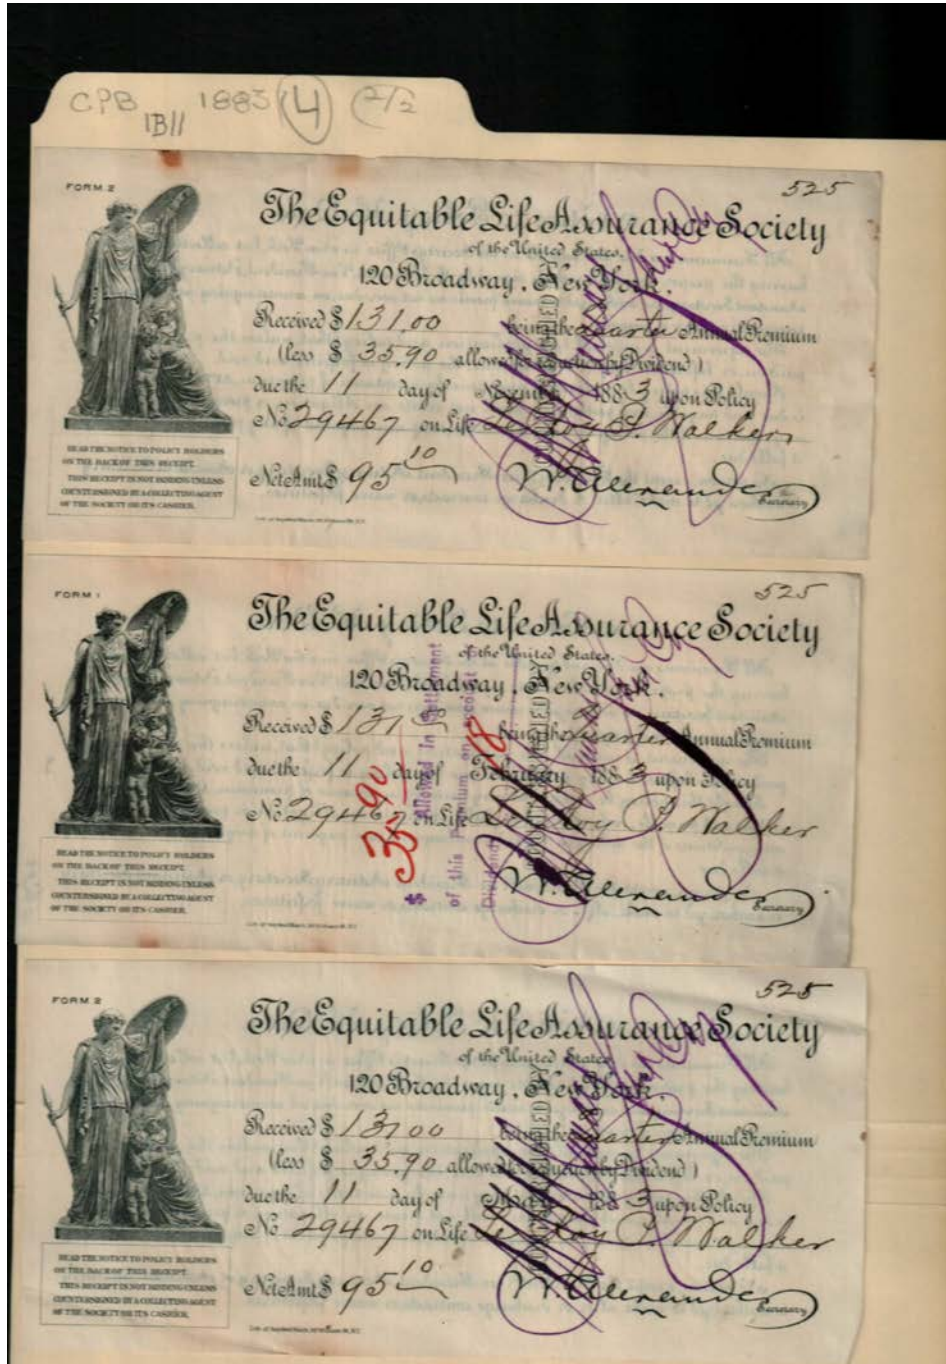 CPB 1883 4 2/2
1B11
FORM 2
525
The Equitable Life Assurance Society
of the United States.
120 Broadway, New York.
Received $ 131.00 being the quarter Annual Premium
(less $ 35.90 allowed for reduction by Dividend)
due the 11 day of November 1883 upon Policy
No. 29467 on Life LeRoy P. Walker
Net Amt $ 95 10
W. Alexander
Secretary
COUNTERSIGNED BY
READ THE NOTICE TO POLICY HOLDERS
ON THE BACK OF THIS RECEIPT.
THIS RECEIPT IS NOT BINDING UNLESS
COUNTERSIGNED BY A COLLECTING AGENT
OF THE SOCIETY OR ITS CASHIER.
FORM 1
525
The Equitable Life Assurance Society
of the United States.
120 Broadway, New York.
Received $ 131 being the quarter Annual Premium
due the 11 day of February 1883 upon Policy
No. 29467 on Life LeRoy P. Walker
W. Alexander
Secretary
$ 35 90 Allowed in Settlement
of this Premium on account of
Dividend
COUNTERSIGNED BY
READ THE NOTICE TO POLICY HOLDERS
ON THE BACK OF THIS RECEIPT.
THIS RECEIPT IS NOT BINDING UNLESS
COUNTERSIGNED BY A COLLECTING AGENT
OF THE SOCIETY OR ITS CASHIER.
FORM 2
525
The Equitable Life Assurance Society
of the United States.
120 Broadway, New York.
Received $ 131.00 being the quarter Annual Premium
(less $ 35.90 allowed for reduction by Dividend)
due the 11 day of May 1883 upon Policy
No 29467 on Life LeRoy P. Walker
Net Amt $ 95 10
W. Alexander
Secretary
COUNTERSIGNED BY
READ THE NOTICE TO POLICY HOLDERS
ON THE BACK OF THIS RECEIPT.
THIS RECEIPT IS NOT BINDING UNLESS
COUNTERSIGNED BY A COLLECTING AGENT
OF THE SOCIETY OR ITS CASHIER.